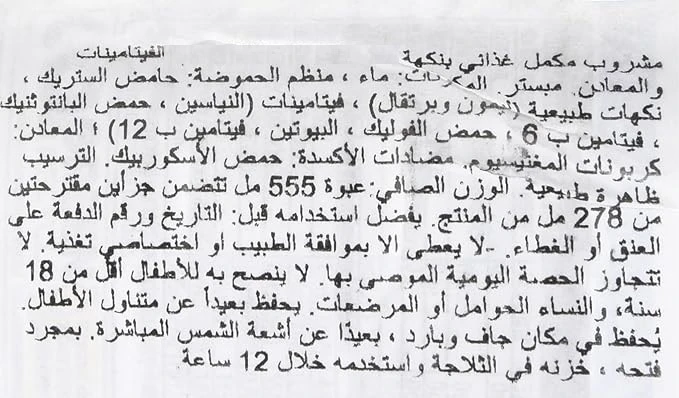 مشروب مكمل غذائي بنكهة الفيتامينات
والمعادن. مبستر. المكونات: ماء ، منظم الحموضة: حامض الستريك ،
نكهات طبيعية (ليمون وبرتقال) ، فيتامينات (النياسين ، حمض البانتوثنيك
، فيتامين ب 6 ، حمض الفوليك ، البيوتين ، فيتامين ب 12) ؛ المعادن:
كربونات المغنيسيوم. مضادات الأكسدة: حمض الأسكوربيك. الترسيب
ظاهرة طبيعية. الوزن الصافي: عبوة 555 مل تتضمن جزأين مقترحتين
من 278 مل من المنتج. يفضل استخدامه قبل: التاريخ ورقم الدفعة على
العنق أو الغطاء. -لا يعطى الا بموافقة الطبيب او اختصاصي تغنية. لا
تتجاوز الحصة اليومية الموصى بها. لا ينصح به للأطفال أقل من 18
سنة، والنساء الحوامل أو المرضعات. يحفظ بعيداً عن متناول الأطفال.
يُحفظ في مكان جاف وبارد ، بعيدًا عن أشعة الشمس المباشرة. بمجرد
فتحه ، خزنه في الثلاجة واستخدمه خلال 12 ساعة